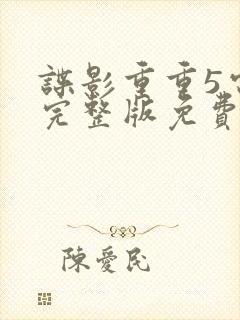 諜影重重5
完整版免費
陳愛民